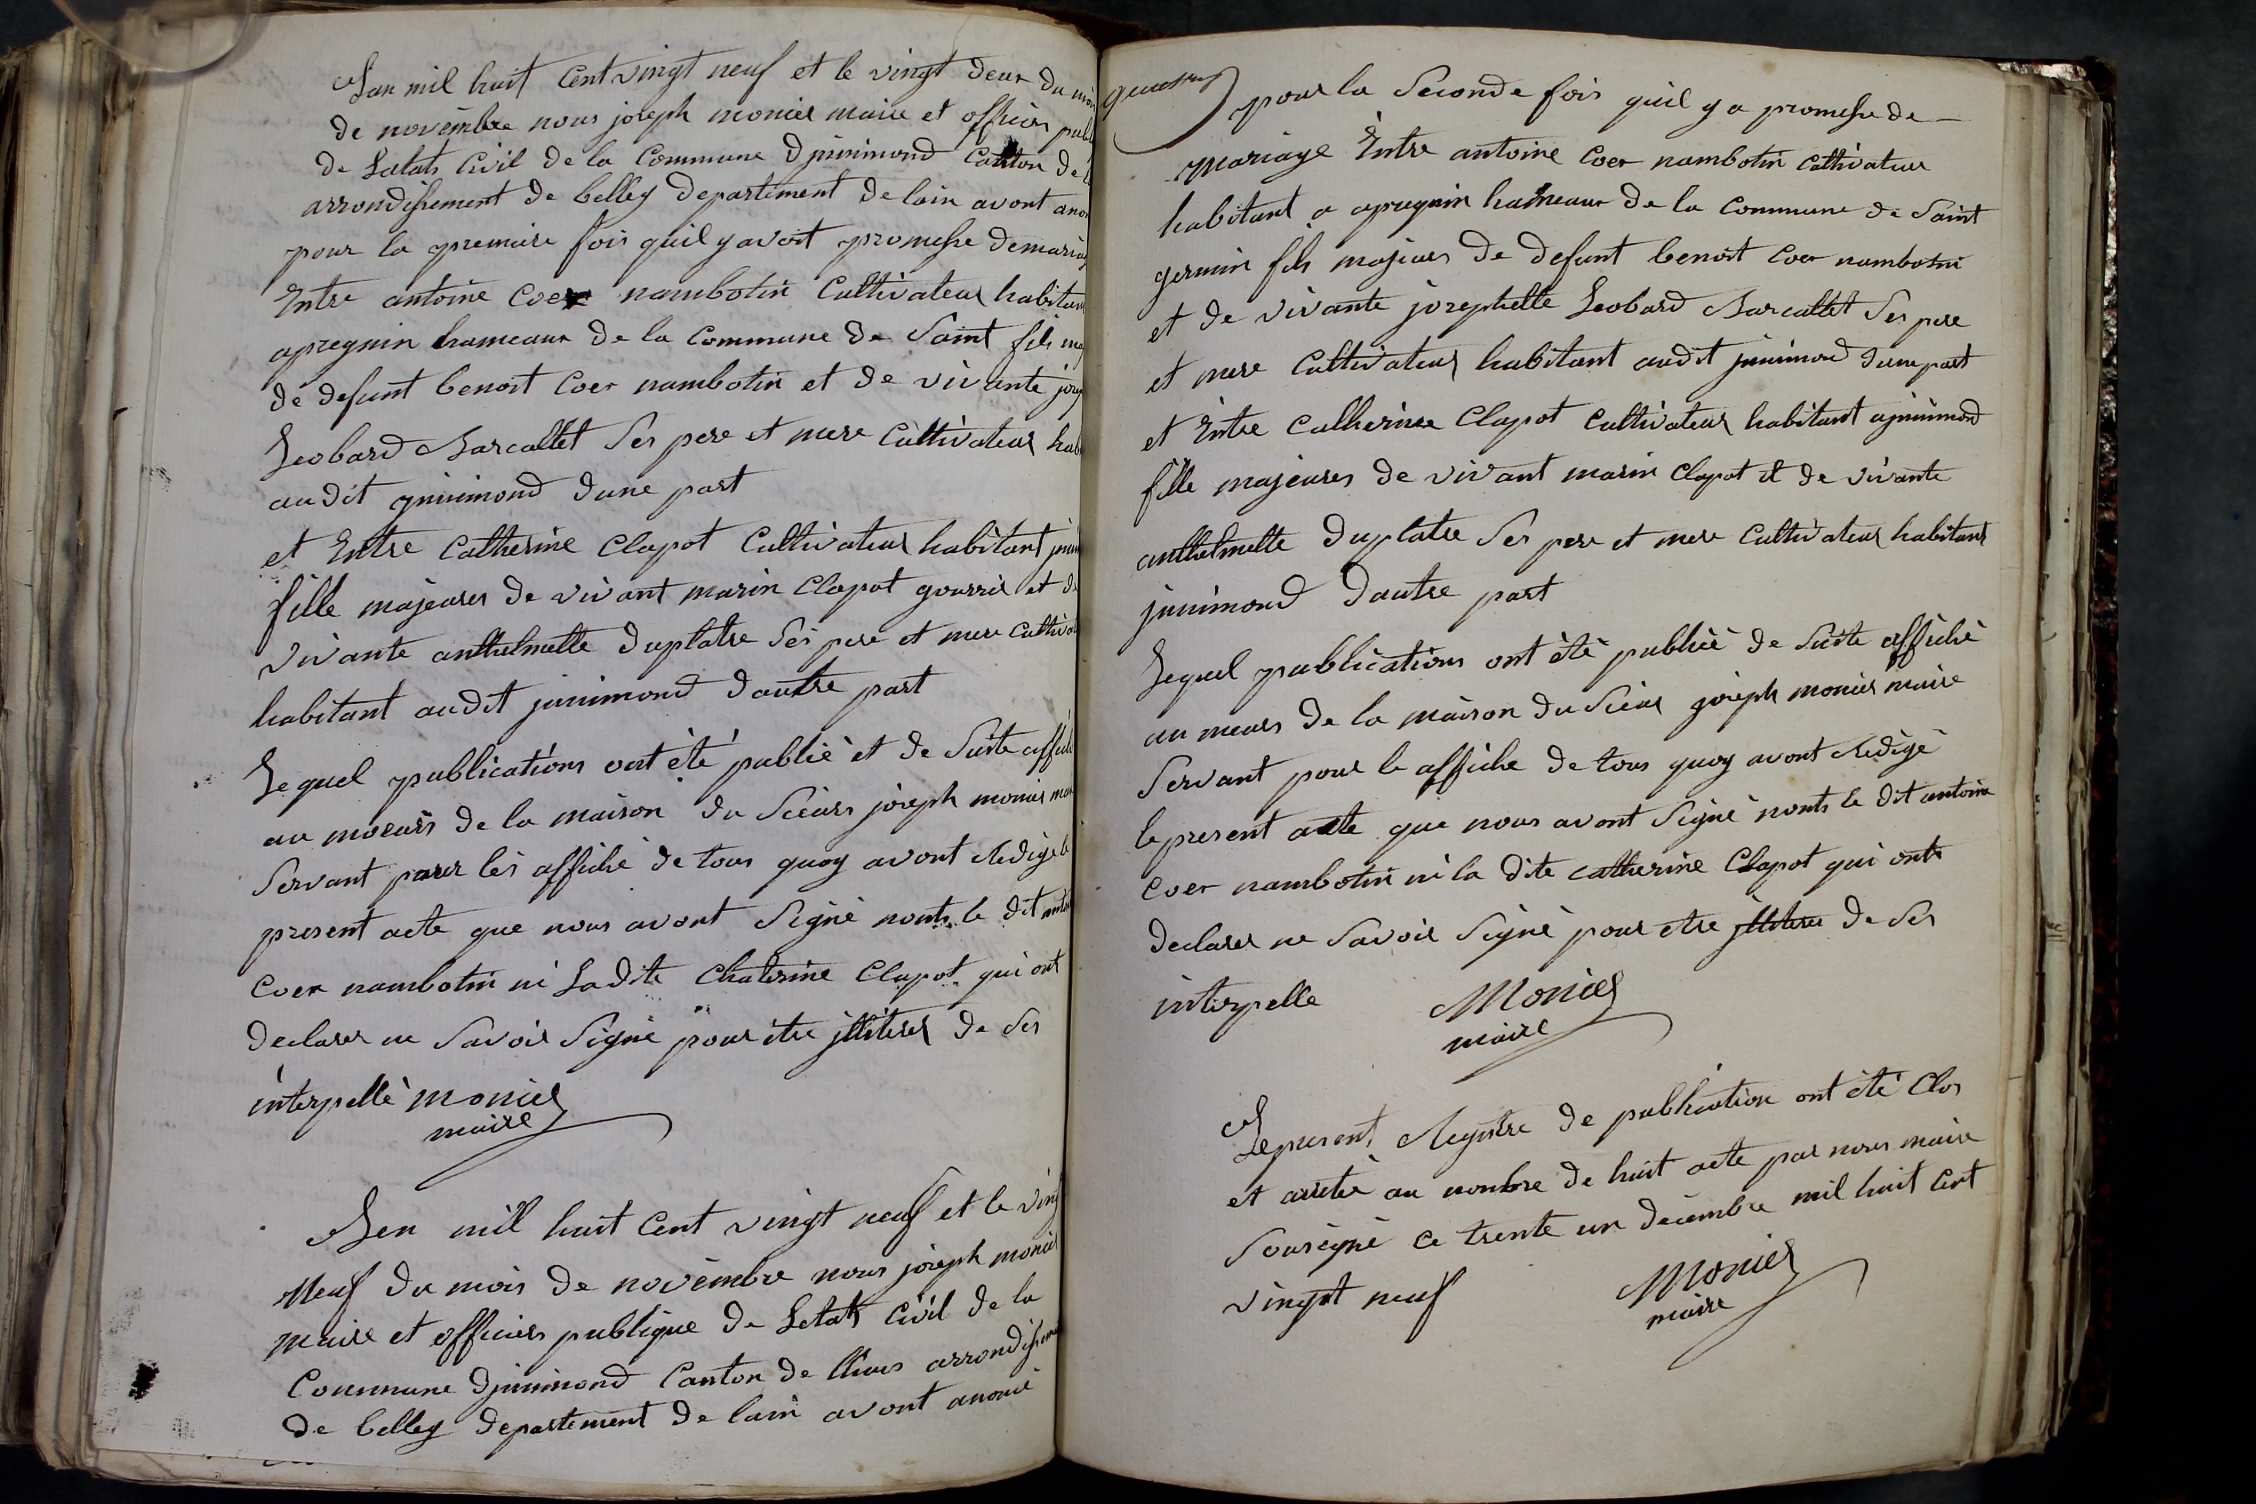 Lan mil huit Cent vingt neuf et le vingt deux du mois
de novembre nous joseph monier maire et officier publ
de Letats Civil de la Commune Djzinimond Canton de
arrondissement de belley departement de lain avont anon
pour la premiere fois quil y avoit promesse demariag
Entre antoine Coer nambotin Cultivateur habitant
apregnin hameaux de la Commune de Saint fils maj
de defunt benoit Coer nambotin et de vivante josep
Leobard Barcallet Ses pere et mere Cultivateur hab
audit jzinimond dune part
et Entre Catherine Clapot Cultivateur habitant jzini
fille majeures de vivant marin Clapot gourris et de
vivante anthelmette Duplatre Ses pere et mere cultiva
habitant audit jzinimond dautre part
Lequel publications ont été publié et de Suite affiché
au moeurs de la maison du Sieurs joseph monier mai
Servant pour les affiché de tous quoy avont Redigé le
present acte que nous avont Signé nonts le dit antoi
Coer nambotin ni Ladite Chaterine Clapot qui ont
declarer ne Savoir Signé pour être jlliterer de Ses
interpellé monier
maire
Len mil huit Cent vingt neuf et le ving
Neuf du mois de novembre nous joseph monier
maire et officiers publique de Letats Civil de la
Commune Djzinimond Canton de lhuis arrondissemen
de belley departement de lain avont anoncé
pour la Seconde fois quil y a promesse de
mariage Entre antoine Coer nambotin cultivateur
habitant a apregnin hameaux de la Commune de Saint
germin fils majeurs de defunt benoit Coer nambotin
et de vivante josephette Leobard Barcallet Ses pere
et mere Cultivateur habitant audit jzinimond dunepart
et Entre Catherine Clapot Cultivateur habitant ajzinimond
fille majeures de vivant marin Clapot et de vivante
anthelmette Duplatre Ses pere et mere Cultivateur habitant
jzinimond dautre part
Lequel publications ont été publié de Suite affiché
au meurs de la maison du Sieur joseph monier maire
Servant pour le affiche de tous quoy avont Redigé
le present acte que nous avont Signé nonts le dit antoine
Coer nambotin ni la dite Catherine Clapot qui ont
declarer ne Savoir Signé pour etre jlliterer de Ses
interpelle Monier
maire
Lepresent Registre de publication ont été Clos
et arrété au nombre de huit acte par nous maire
Sousigné ce trente un decembre mil huit Cent
vingt neuf Monier
maire